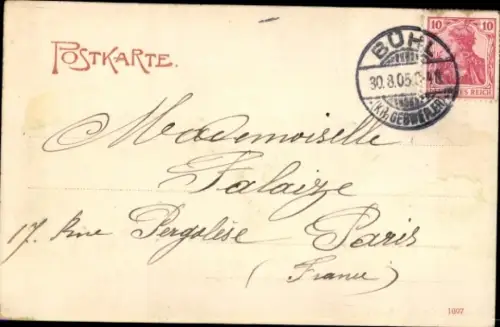 POSTKARTE.
10 10
BÜHL
30.8.05.
(Kr. GEBWEILER)
ES REICH
Mademoiselle
Falaize
17. Rue Pergolèse Paris
(France)
1607